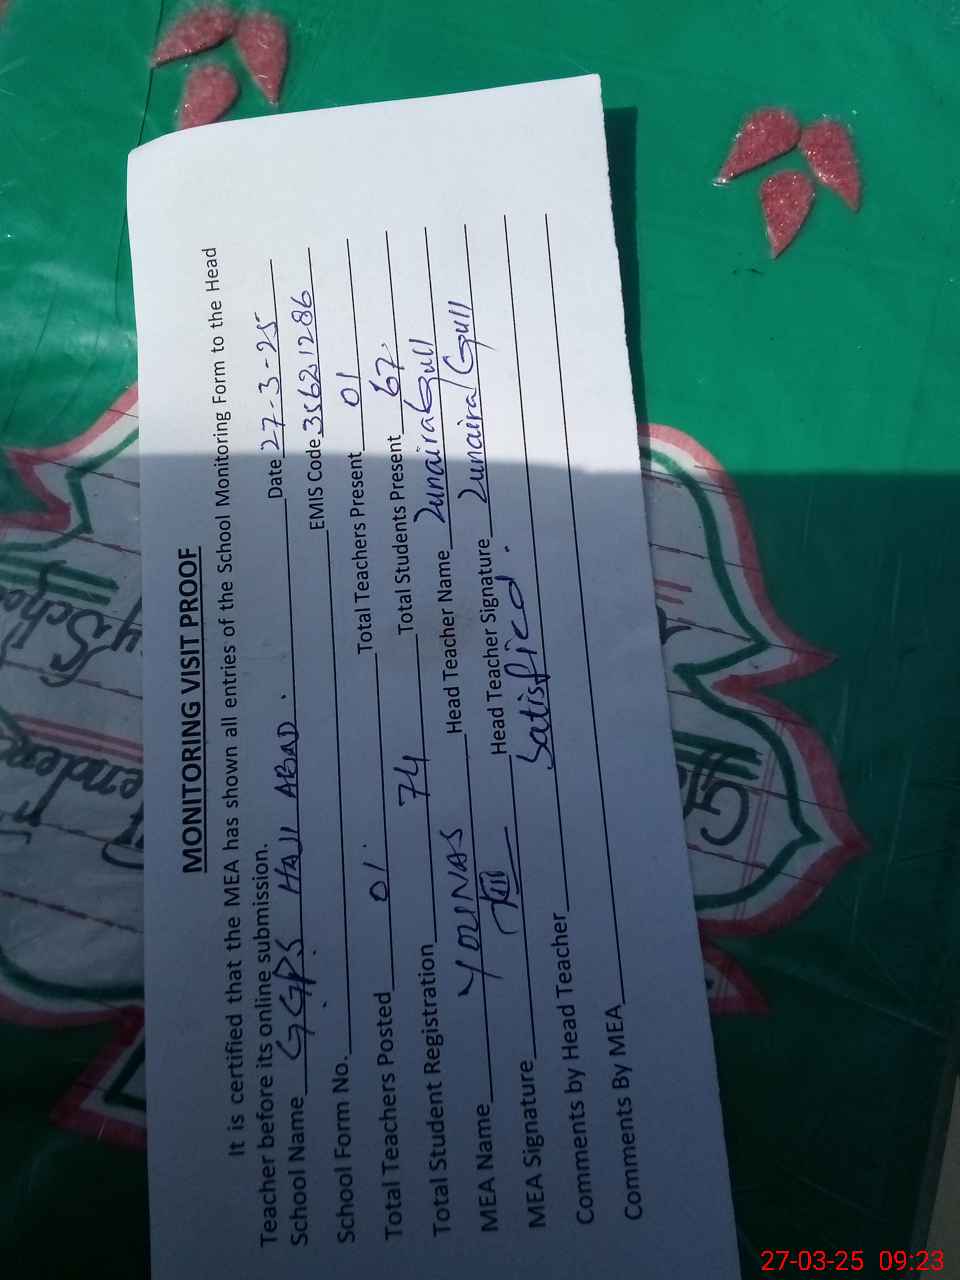 MONITORING VISIT PROOF
It is certified that the MEA has shown all entries of the School Monitoring Form to the Head
Teacher before its online submission.
School Name GGPS HAJI ABAD. Date 27-3-25
School Form No. EMIS Code 35621286
Total Teachers Posted 01. Total Teachers Present 01
Total Student Registration 74 Total Students Present 67.
MEA Name YOUNAS Head Teacher Name Zunaira Gull
MEA Signature Head Teacher Signature Zunaira Gull
Comments by Head Teacher Satisfied.
Comments By MEA
27-03-25 09:23